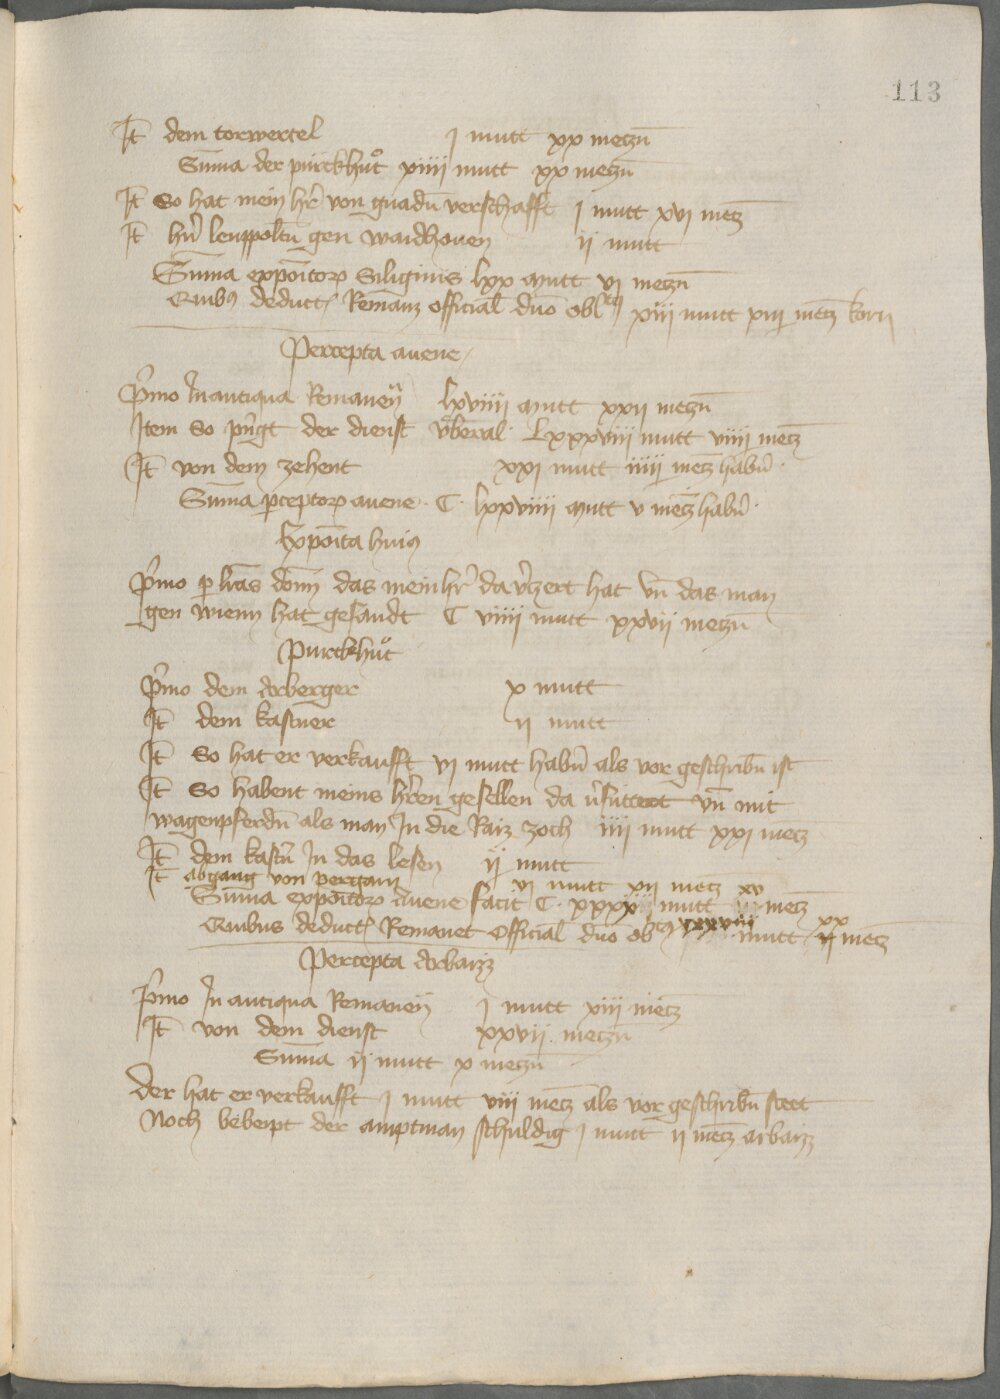 113
It dem torwertel j mutt xx meczn̄
Sum̄a der purckhůt xiiii mutt xx meczn̄
It So hat mein hr̄ von gnadn̄ verschafft j mutt xvj mecz̄
It hn̄ leuppoltn̄ gen waidhouen ij mutt
Sum̄a expoitor̄ Siliginis lxx mutt vj meczn̄
Quibus deduct̄ Remanz official duo obl xiii mutt xiij mecz̄ korn
Percepta auene
P̄mo In antiqua Remanen̄ lxviiii mutt xxii meczn̄
Item So pn̄gt der dienst v̈beral Lxxxviii mutt viiii mecz̄
It von dem zehent xxj mutt iiij mecz̄ habn̄
Sum̄a p̄ceptor̄ auene C lxxviiii mutt v mecz̄ habn̄
Expoīta huius
P̄mo p lr̄as dom̄ das mein hr̄ da v̄czert hat vn̄ das man
gen wienn hat gesandt C viiii mutt xxvii meczn
Purckhůt
P̄mo dem dorberger x mutt
It dem kastner ii mutt
It So hat er verkaufft vj mutt habn̄ als vor geschribn̄ ist
It So habent meins hr̄en gesellen da v̄futtert vn̄ mit
wagenpferdn̄ als man In die Raiz zoch iiii mutt xxj mecz̄
It dem kastn̄ In das lesen ij mutt
It abgang von pergam vj mutt xij mecz̄
Sum̄a expoītor̄ Auene facit C xxxx mutt xv mecz̄
Quibus deduct̄ Remanet Official duo ob xxxviii mutt xx mecz
Percepta Arbaiz
P̄mo In antiqua Remanen̄ j mutt xiii mecz̄
It von dem dienst xxvii meczn̄
Sum̄a ii mutt x meczn̄
der hat er verkaufft j mutt viii mecz̄ als vor geschribn̄ stett
Noch beleipt der amptman schuldig j mutt ii mecz̄ arbaiz